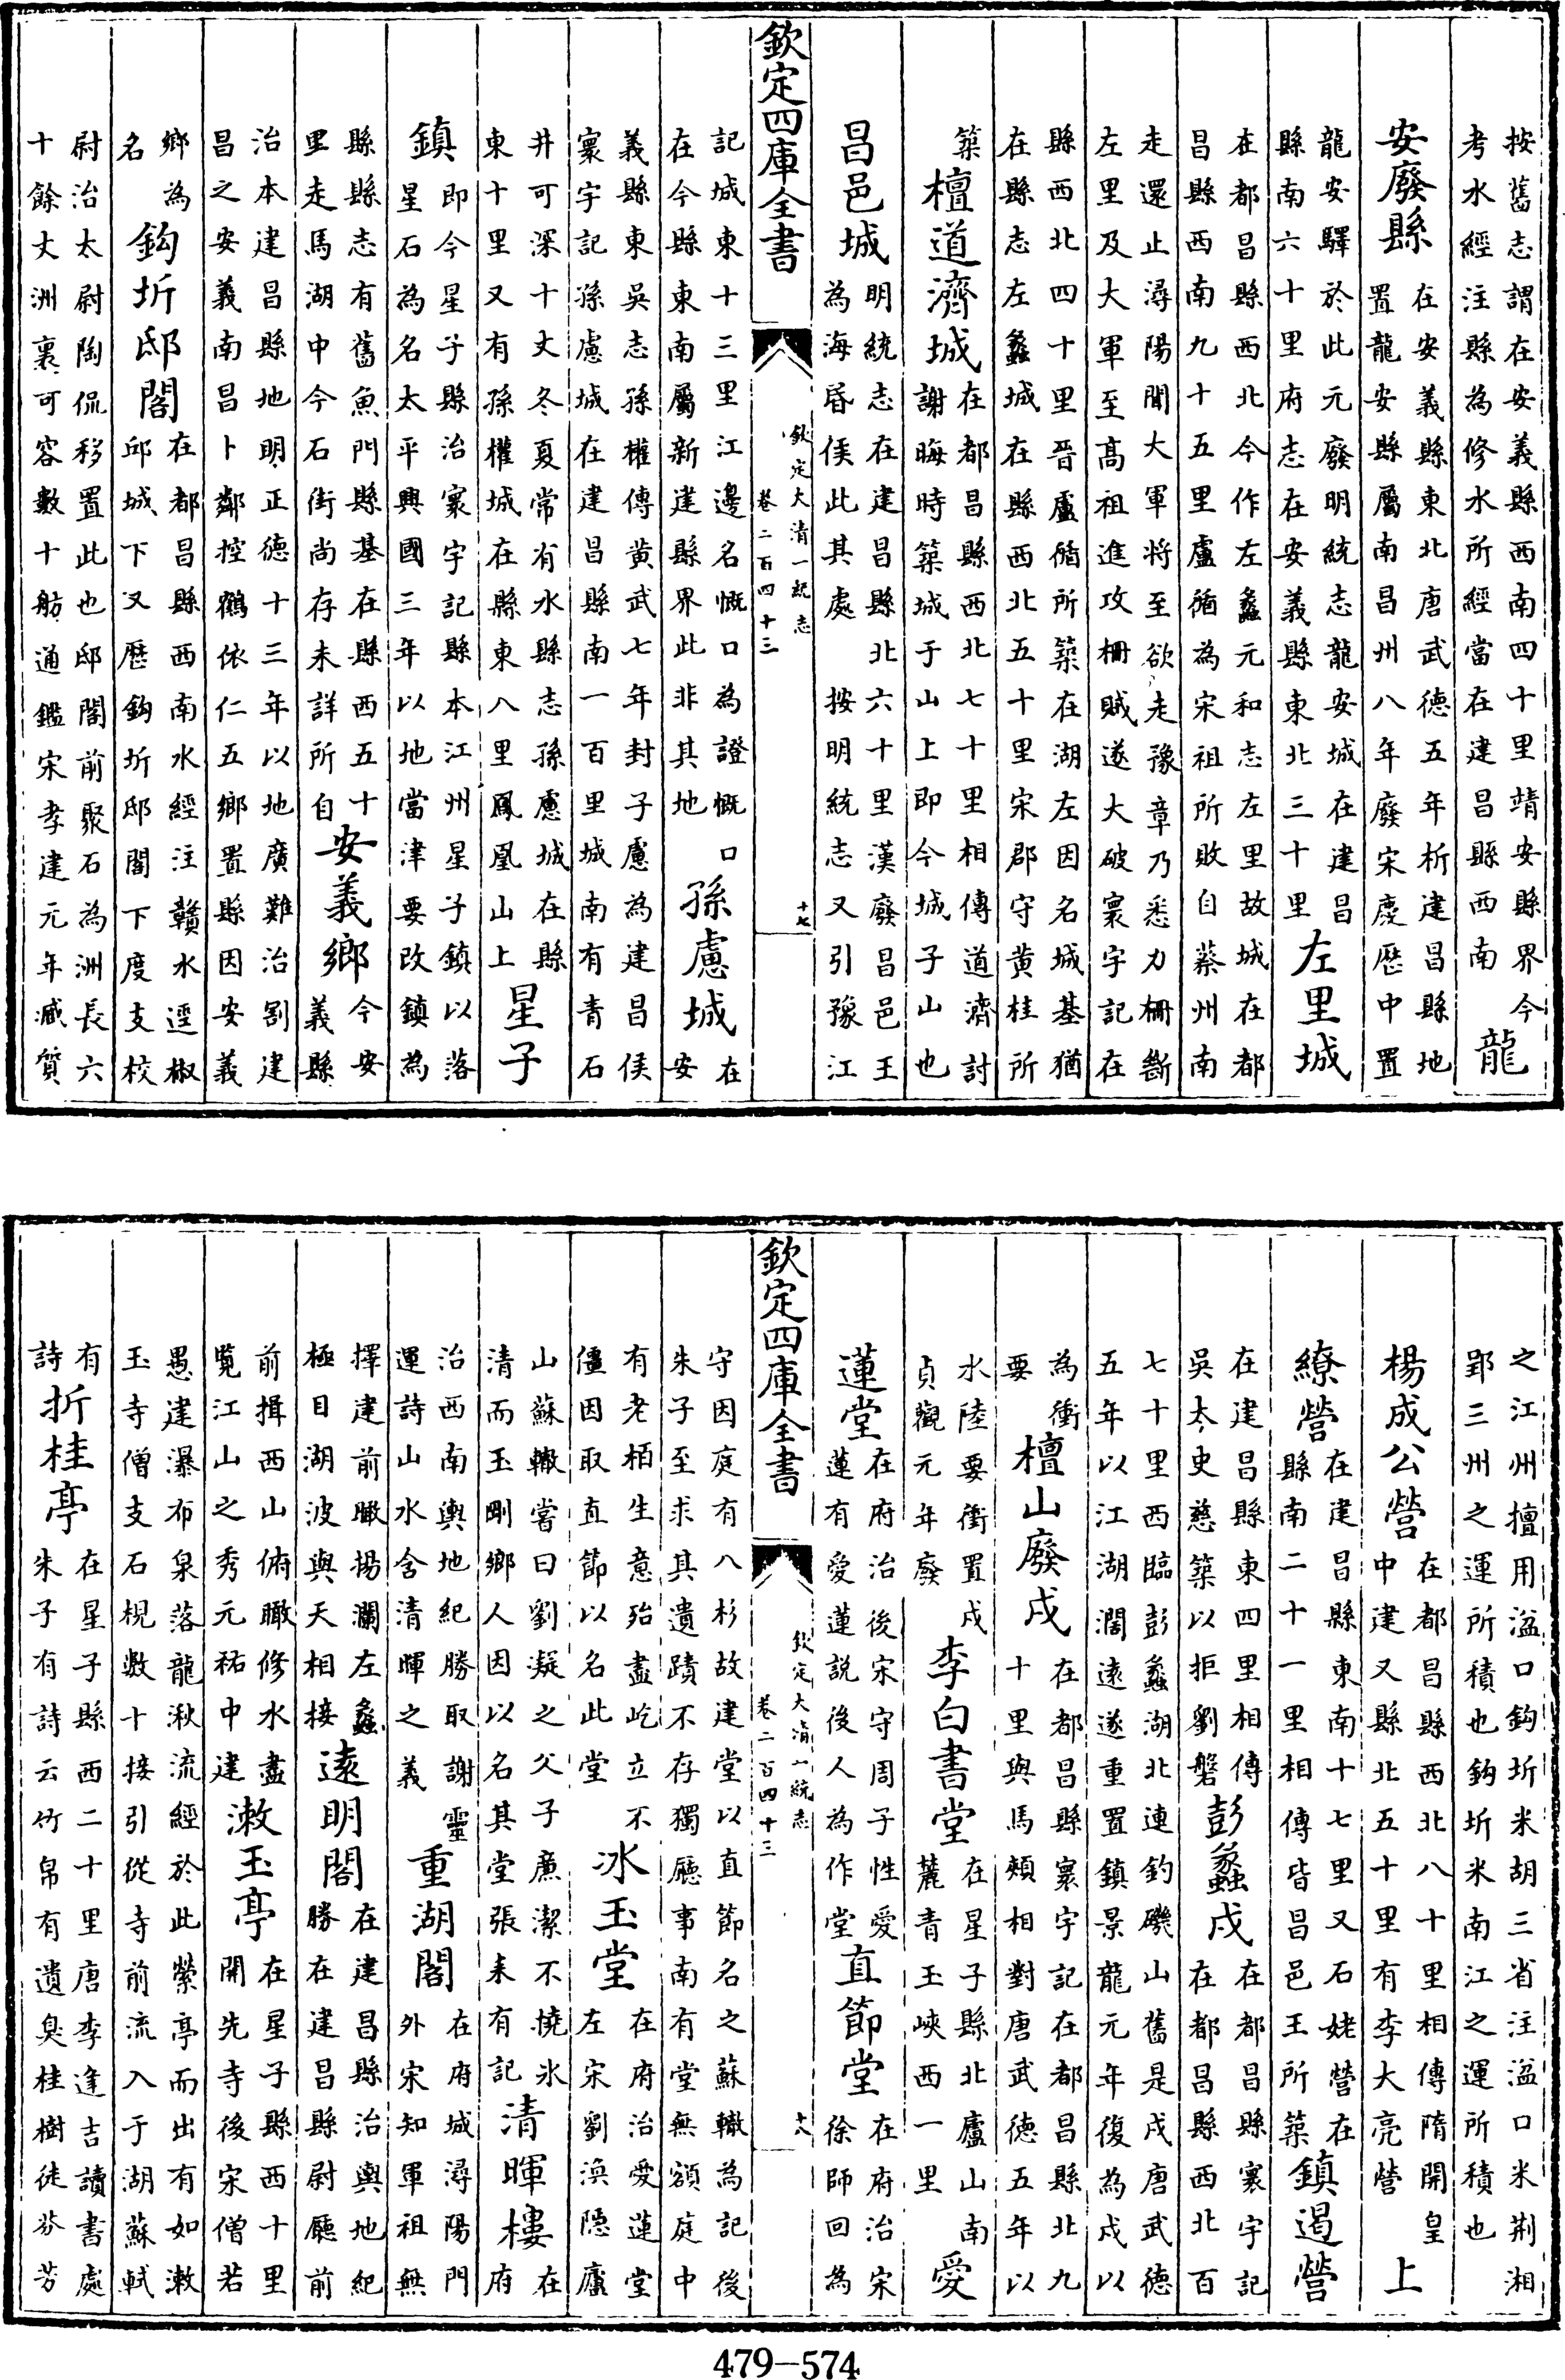 按舊志謂在安義縣西南四十里靖安縣界今
考水經注縣為修水所經當在建昌縣西南
龍
安廢縣
在安義縣東北唐武德五年析建昌縣地
置龍安縣屬南昌州八年廢宋慶歷中置
龍安驛於此元廢明統志龍安城在建昌
縣南六十里府志在安義縣東北三十里
左里城
在都昌縣西北今作左蠡元和志左里故城在都
昌縣西南九十五里盧循為宋祖所敗自蔡州南
走還止潯陽聞大軍将至欲走豫章乃悉力柵斷
左里及大軍至高祖進攻柵賊遂大破寰宇記在
縣西北四十里晉盧循所築在湖左因名城基猶
在縣志左蠡城在縣西北五十里宋郡守黄桂所
築
檀道濟城
在都昌縣西北七十里相傳道濟討
謝晦時築城于山上即今城子山也
昌邑城
明統志在建昌縣北六十里漢廢昌邑王
為海昏侯此其處 按明統志又引豫江
欽定四庫全書
欽定大清一統志
卷二百四十三
十七
記城東十三里江邊名慨口為證慨口
在今縣東南屬新建縣界此非其地
孫慮城
在
安
義縣東吳志孫權傳黄武七年封子慮為建昌侯
寰宇記孫慮城在建昌縣南一百里城南有青石
井可深十丈冬夏常有水縣志孫慮城在縣
東十里又有孫權城在縣東八里鳳凰山上
星子
鎮
即今星子縣治寰宇記縣本江州星子鎮以落
星石為名太平興國三年以地當津要改鎮為
縣縣志有舊魚門縣基在縣西五十
里走馬湖中今石街尚存未詳所自
安義鄉
今安
義縣
治本建昌縣地明正德十三年以地廣難治割建
昌之安義南昌卜鄰控鶴依仁五鄉置縣因安義
鄉為
名
鈎圻邸閣
在都昌縣西南水經注贛水逕椒
邱城下又歷鈎圻邸閣下度支校
尉治太尉陶侃移置此也邸閣前聚石為洲長六
十餘丈洲裏可容數十舫通鑑宋孝建元年臧質
之江州擅用湓口鈎圻米胡三省注湓口米荆湘
郢三州之運所積也鈎圻米南江之運所積也
楊成公營
在都昌縣西北八十里相傳隋開皇
中建又縣北五十里有李大亮營
上
繚營
在建昌縣東南十七里又石姥營在
縣南二十一里相傳皆昌邑王所築
鎮遏營
在建昌縣東四里相傳
吳太史慈築以拒劉磐
彭蠡戍
在都昌縣寰宇記
在都昌縣西北百
七十里西臨彭蠡湖北連釣磯山舊是戍唐武德
五年以江湖濶遠遂重置鎮景龍元年復為戍以
為衝
要
檀山廢戍
在都昌縣寰宇記在都昌縣北九
十里與馬頰相對唐武德五年以
水陸要衝置戍
貞觀元年廢
李白書堂
在星子縣北廬山南
麓青玉峽西一里
愛
蓮堂
在府治後宋守周子性愛
蓮有愛蓮説後人為作堂
直節堂
在府治宋
徐師回為
欽定四庫全書
欽定大清一統志
卷二百四十三
十八
守因庭有八杉故建堂以直節名之蘇轍為記後
朱子至求其遺蹟不存獨廳事南有堂無額庭中
有老栢生意殆盡屹立不
僵因取直節以名此堂
冰玉堂
在府治愛蓮堂
左宋劉渙隠廬
山蘇轍嘗曰劉凝之父子廉潔不撓氷
清而玉剛鄉人因以名其堂張耒有記
清暉樓
在
府
治西南輿地紀勝取謝靈
運詩山水含清暉之義
重湖閣
在府城潯陽門
外宋知軍祖無
擇建前瞰揚瀾左蠡
極目湖波與天相接
遠明閣
在建昌縣治輿地紀
勝在建昌縣尉廳前
前揖西山俯瞰修水盡
覧江山之秀元祐中建
漱玉亭
在星子縣西十里
開先寺後宋僧若
愚建瀑布泉落龍湫流經於此縈亭而出有如漱
玉寺僧支石梘數十接引從寺前流入于湖蘇軾
有
詩
折桂亭
在星子縣西二十里唐李逢吉讀書處
朱子有詩云竹帛有遺臭桂樹徒芬芳
479—574